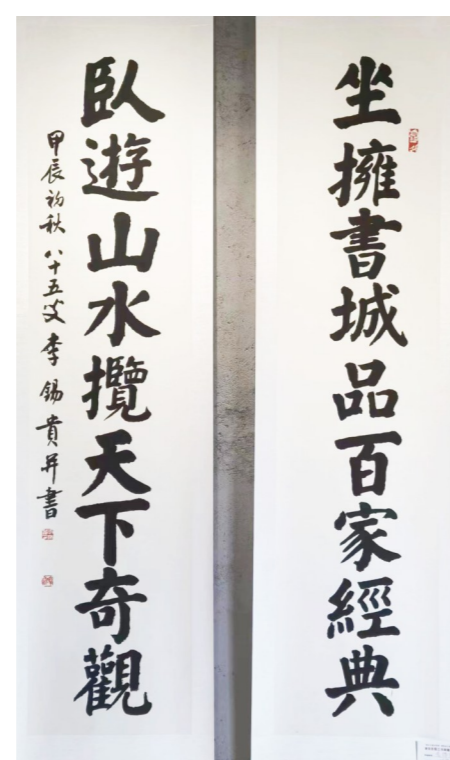 坐擁書城品百家經典
臥遊山水攬天下奇觀
甲辰初秋 八十五叟 李錫貴并書